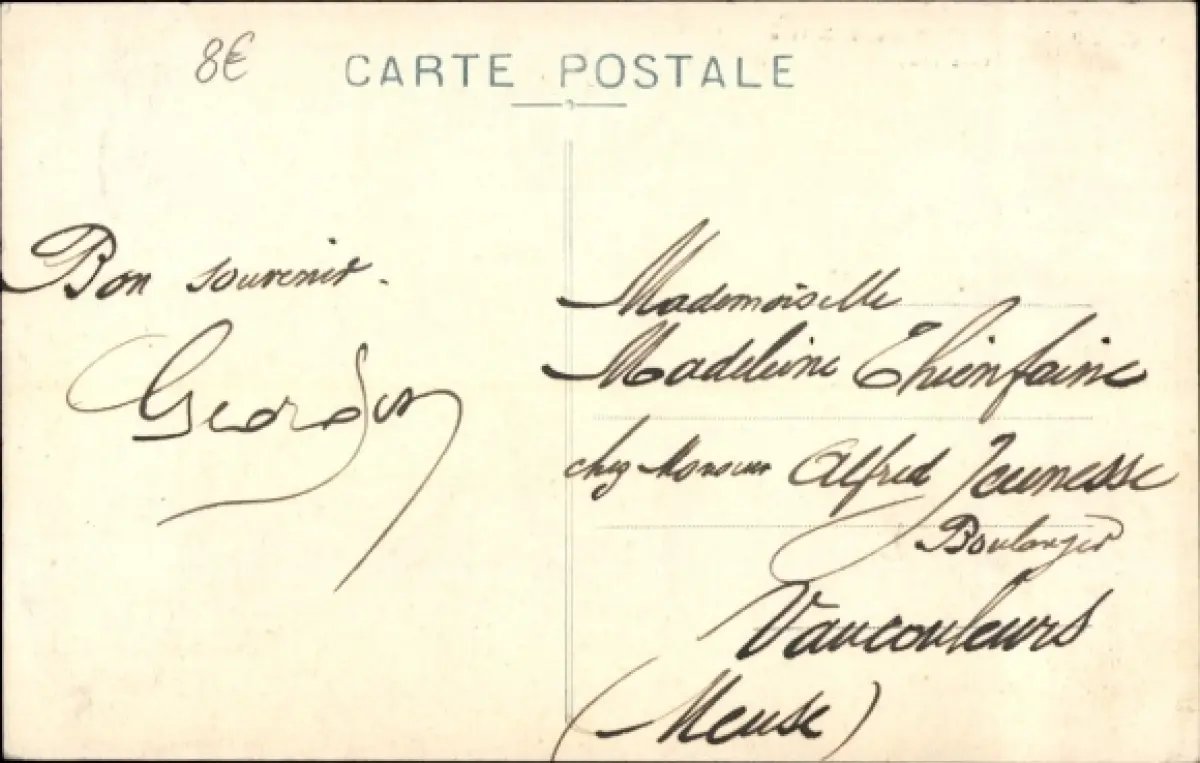 8€
CARTE POSTALE
Bon souvenir.
Georges
Mademoiselle
Madeleine Thienfaine
chez Monsieur Alfred Jeunesse
Boulanger
Vaucouleurs
(Meuse)